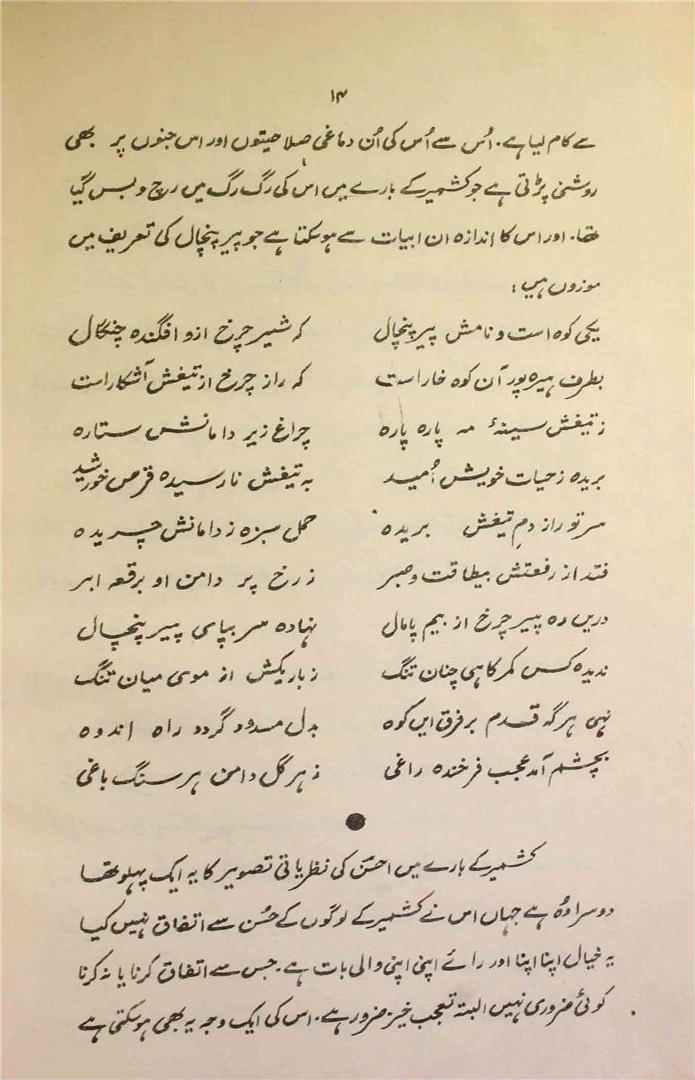 ۱۴
سے کام لیا ہے۔ اُس سے اُس کی اُن دماغی صلاحیتوں اور اس جنوں پر بھی
روشنی پڑتی ہے جو کشمیر کے بارے میں اس کی رگ رگ میں رچ و بس گیا
تھا۔ اور اس کا اندازہ ان ابیات سے ہو سکتا ہے جو پیر پنچال کی تعریف میں
موزوں ہیں :
یکی کوہ است و نامش پیر پنچال کہ شیر چرخ ازو افگندہ چنگال
بطرف ہیرہ پور آن کوہ خار است کہ راز چرخ از تیغش آشکار است
ز تیغش سینۂ مہ پارہ پارہ چراغ زیر دامانش ستارہ
بریدہ ز حیات خویش اُمید بہ تیغش نارسیدہ قرص خورشید
سر تو راز دمِ تیغش بریدہ حمل سبزہ ز دامانش چریدہ
فتد از رفعتش بیطاقت و صبر ز رخ پر دامن او برقعہ ابر
دریں رہ پیر چرخ از بیم پامال نہادہ سر بپای پیر پنچال
ندیدہ کس کمر کاہی چنان تنگ ز باریکش از موی میان تنگ
نہی ہر گہ قدم بر فرق ایں کوہ بدل مسدود گردد راہ اندوہ
بچشم آمد عجب فرخندہ راغی ز ہر گل دامن ہر سنگ باغی
کشمیر کے بارے میں احسن کی نظریاتی تصویر کا یہ ایک پہلو تھا
دوسرا وہ ہے جہاں اس نے کشمیر کے لوگوں کے حُسن سے اتفاق نہیں کیا
یہ خیال اپنا اپنا اور رائے اپنی اپنی والی بات ہے۔ جس سے اتفاق کرنا یا نہ کرنا
کوئی ضروری نہیں البتہ تعجب خیز ضرور ہے۔ اس کی ایک وجہ یہ بھی ہو سکتی ہے